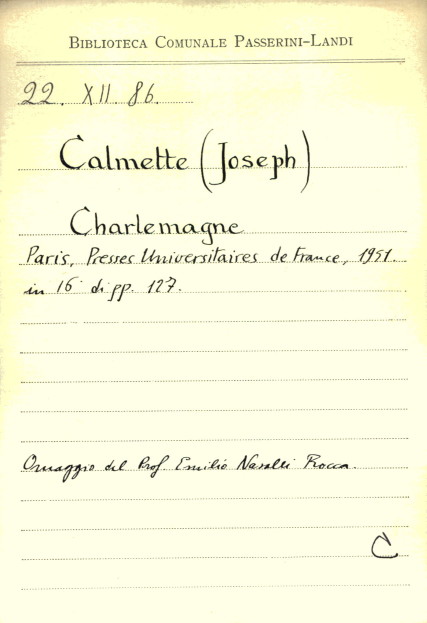 BIBLIOTECA COMUNALE PASSERINI-LANDI
22. XII. 86.
Calmette (Joseph)
Charlemagne
Paris, Presses Universitaires de France, 1951.
in 16° di pp. 127.
Omaggio del Prof. Emilio Nasalli Rocca.
C